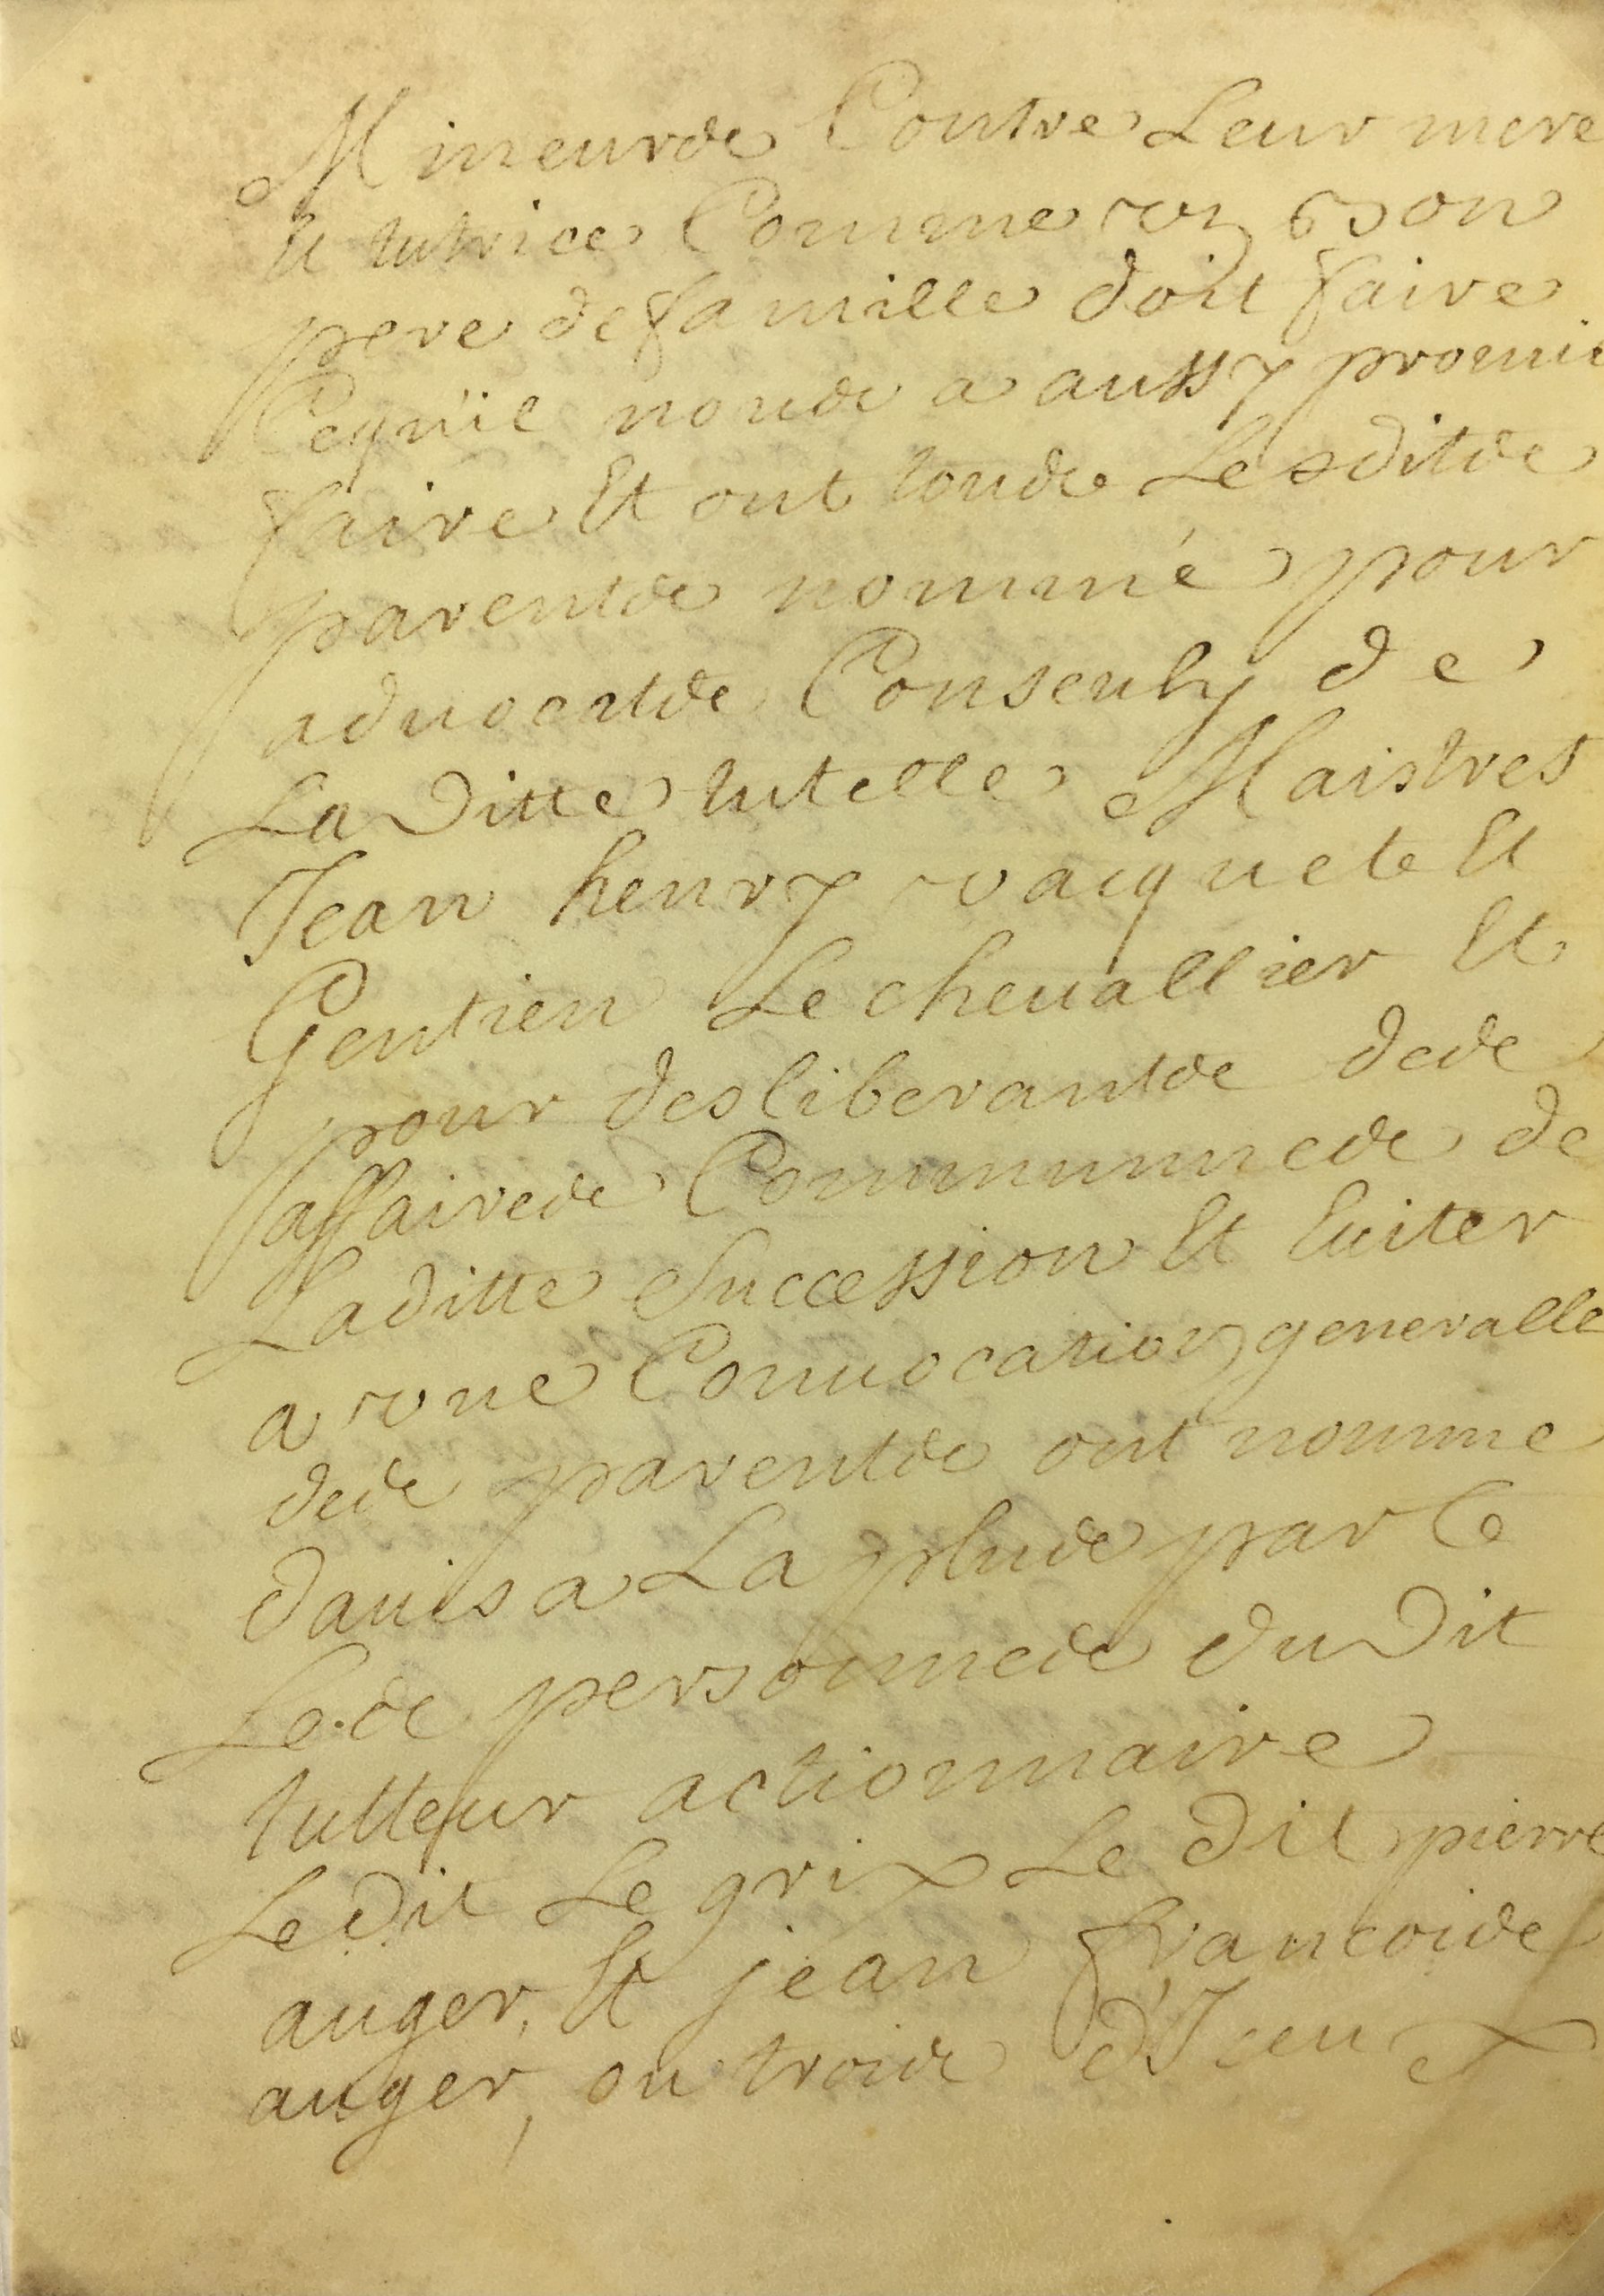 Mineurs Contre Leur mere
Et tutrice Comme un bon
pere de famille doit faire
Cequ'il nous a aussy promis
faire Et ont tous Lesdits
parents nommé pour
aduocats Conseuls de
La Ditte tutelle Maistres
Jean henry vacquet Et
Gentien Lecheuallier Et
pour desliberants des
affaires Communes de
Laditte Succession Et Euiter
a une Conuocation generalle
des parents ont nomme
dauis a La plus par Ce
Les personnes du Dit
tutteur actionnaire
Le Dit Le grix Le Dit pierre
auger, Et jean francois
auger, ou trois d'Iceux